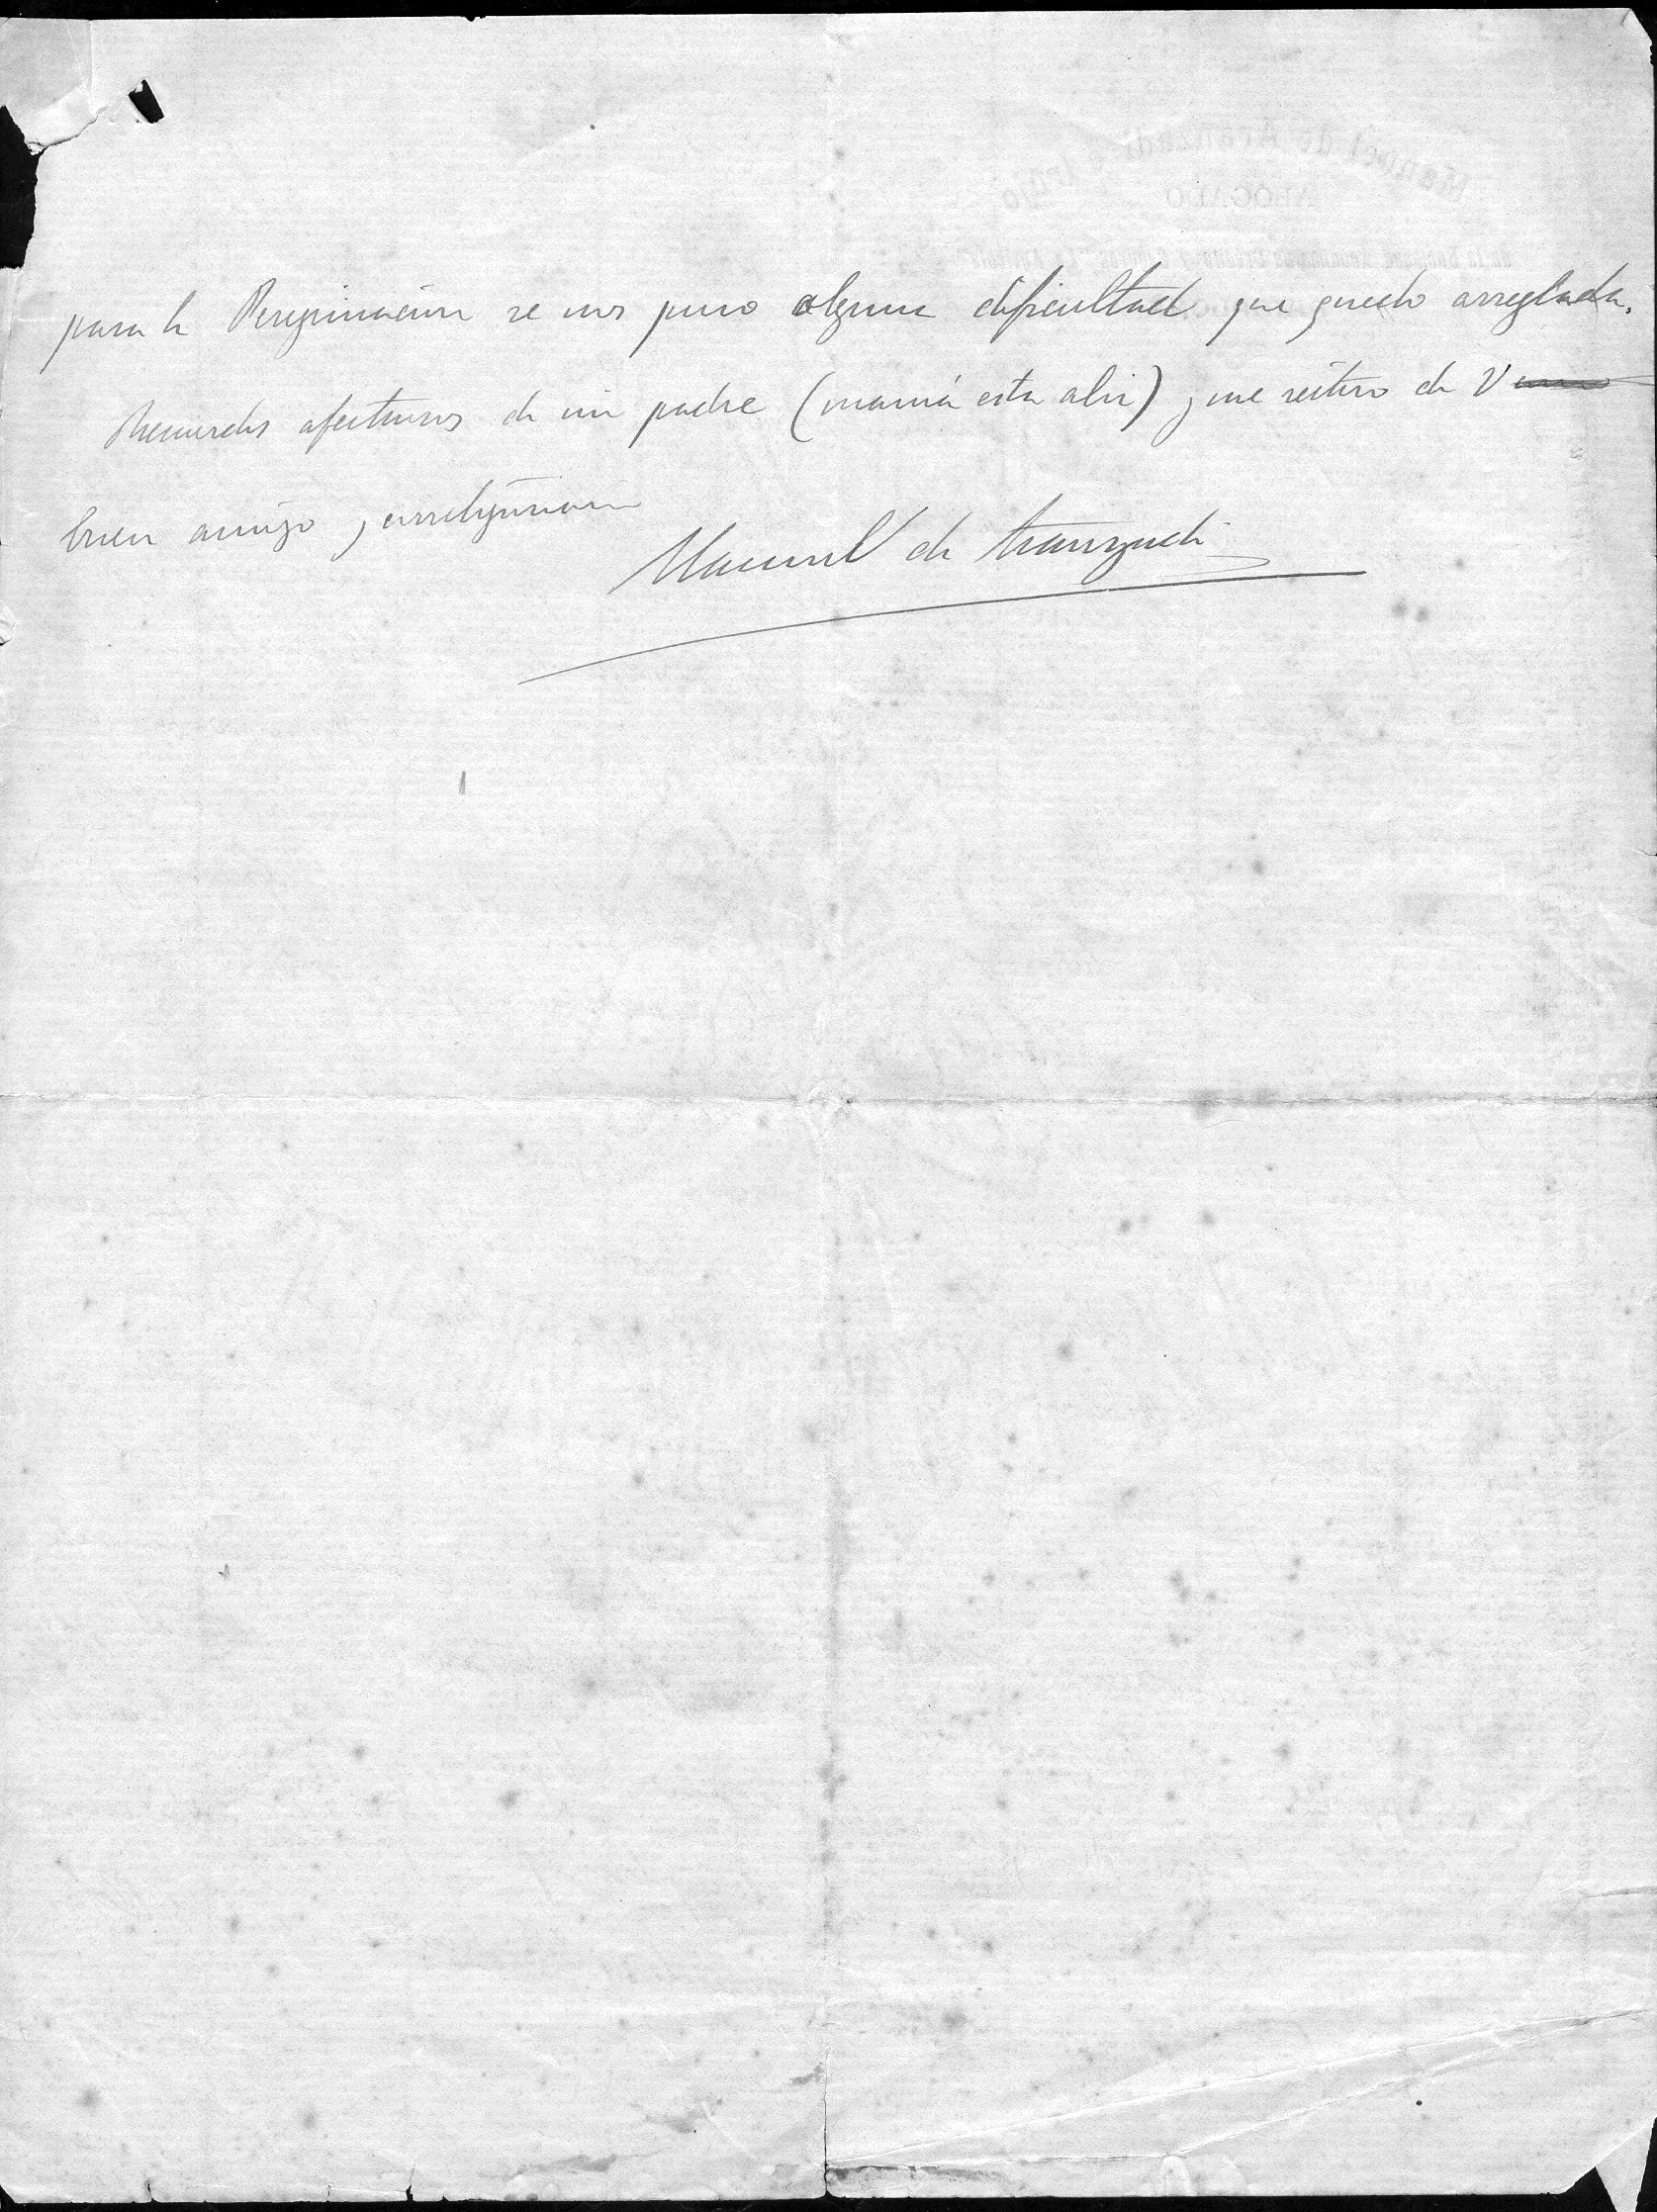 para la Peregrinación se nos puso alguna dificultad que quedo arreglada.
Recuerdos afectuosos de mi padre (mamá esta ahi) y me reitero de V
buen amigo y correligionario
Manuel de Aranzadi